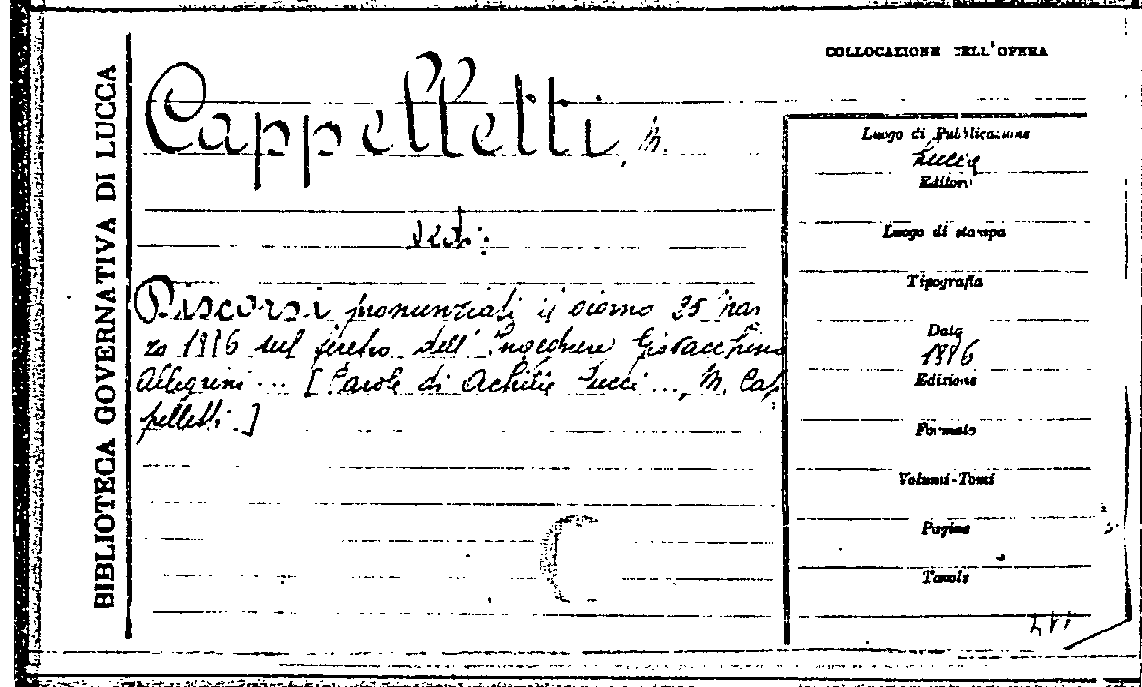 BIBLIOTECA GOVERNATIVA DI LUCCA
COLLOCAZIONE DELL'OPERA
Cappelletti, M.
vedi:
Discorsi pronunziati il giorno 25 mar
zo 1886 sul feretro dell'Ingegnere Giovacchino
Allegrini ... [Parole di Achille Lucci ..., M. Cap
pelletti.]
Luogo di Pubblicazione
Lucca
Editori
Luogo di stampa
Tipografia
Data
1886
Edizione
Formato
Volumi-Tomi
Pagine
Tavole